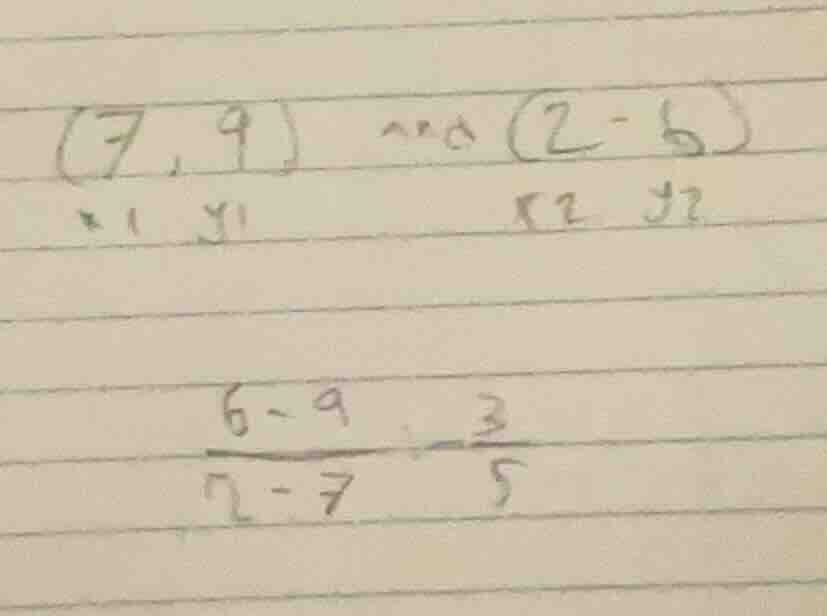 (7, 9) and (2 - 6)
x1 y1 x2 y2
6 - 9 - 3
2 - 7 5